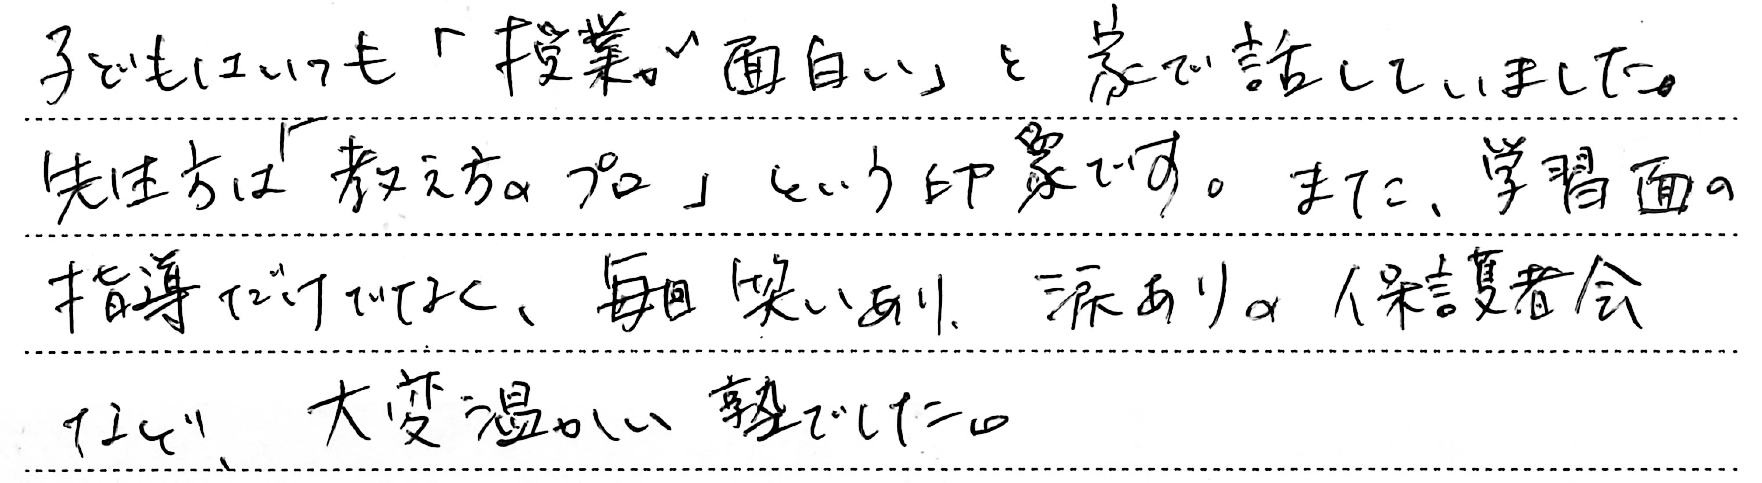 子どもはいつも「授業が面白い」と家で話していました。
先生方は「教え方のプロ」という印象です。また、学習面の
指導だけでなく、毎回笑いあり、涙ありの保護者会
など、大変温かい塾でした。